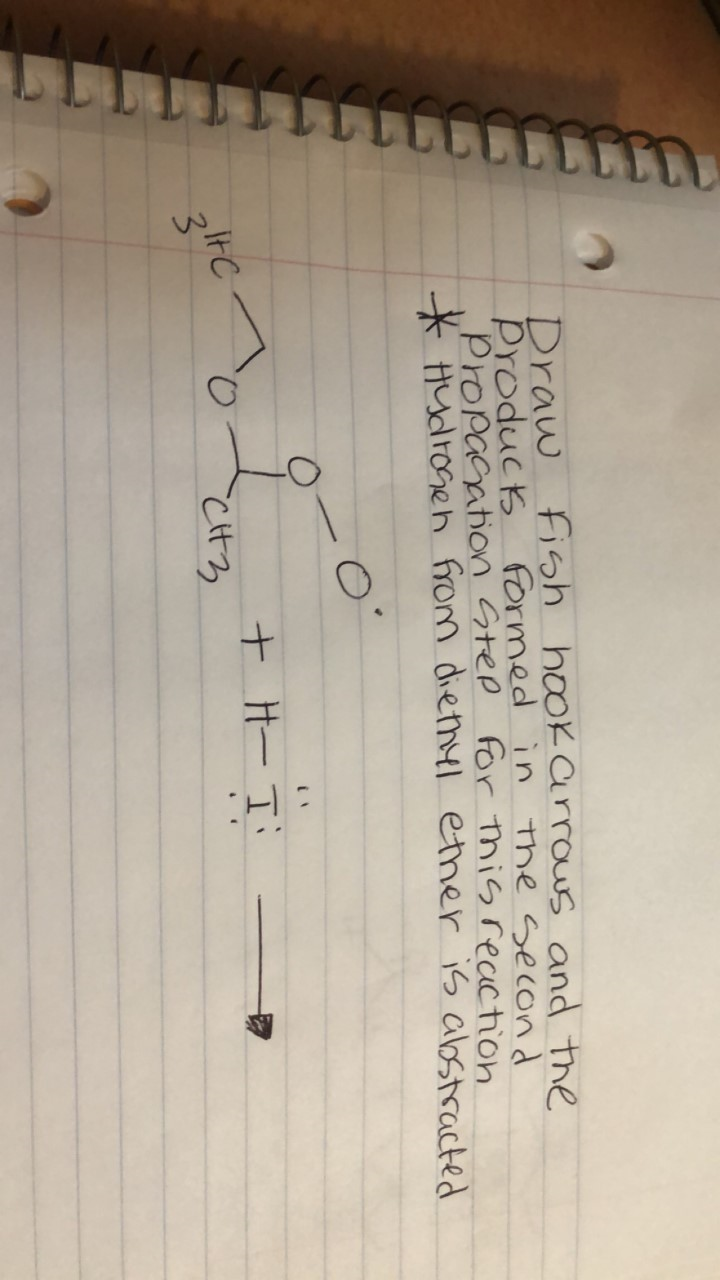 Draw fish hook arrows and the
products formed in the second
propagation step for this reaction
* Hydrogen from diethyl ether is abstracted
O
O·
3HC
O
CH3
+ H-I